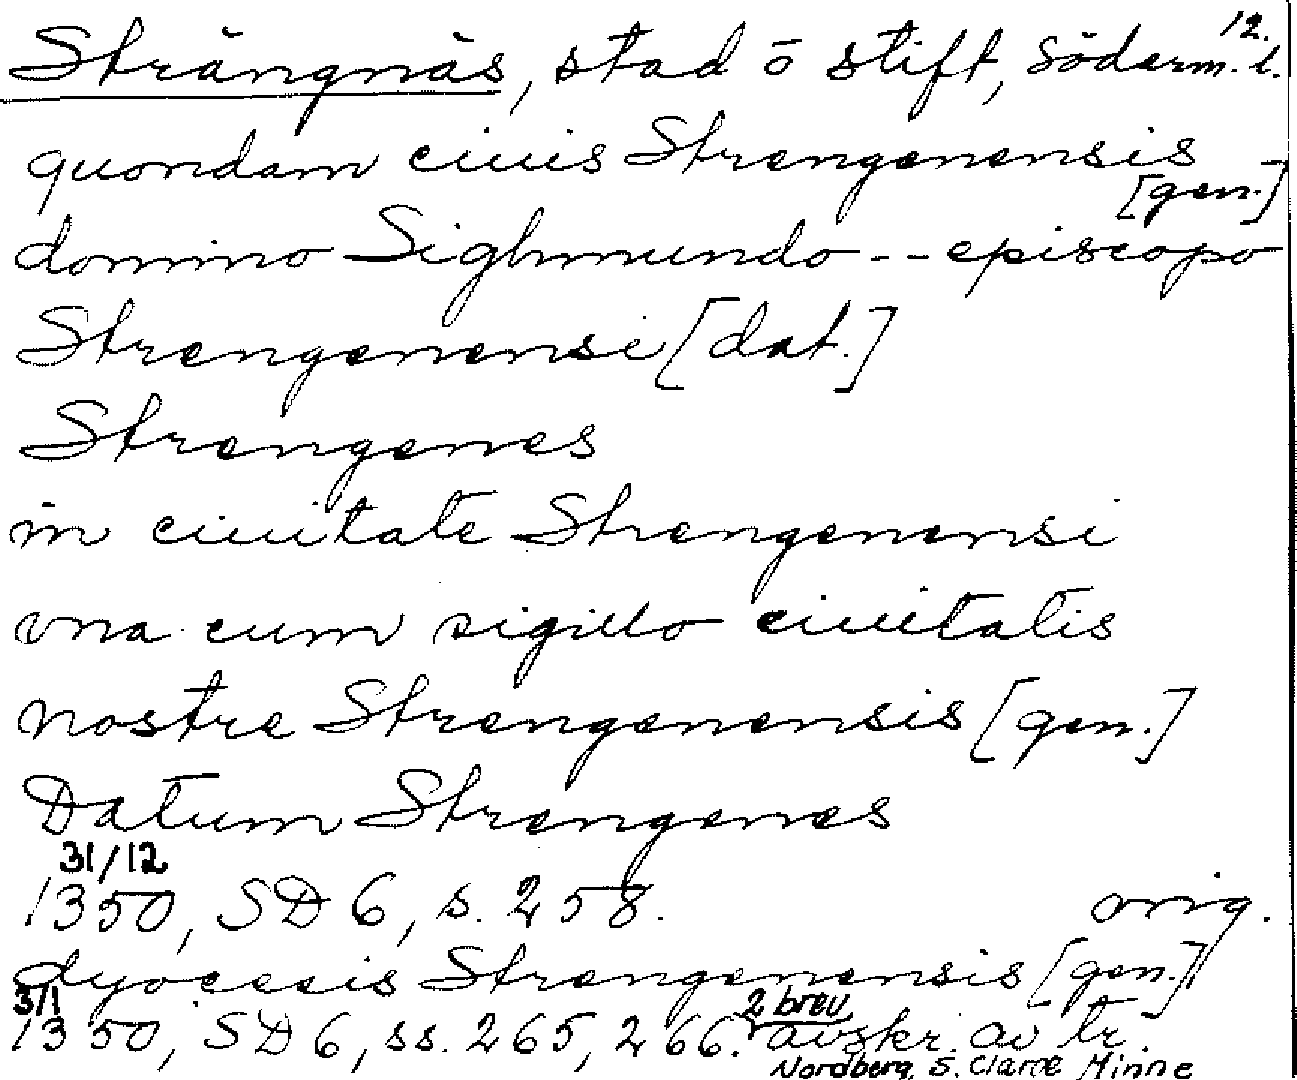 12.
Strängnäs, stad o stift, Söderm. l.
quondam ciuis Strengenensis
[gen.]
domino Sighmundo -- episcopo
Strengenensi [dat.]
Strengenes
in ciuitate Strengenensi
vna cum sigillo ciuitatis
nostre Strengenensis [gen.]
Datum Strengenes
31/12
1350, SD 6, s. 258. orig.
dyocesis Strengenensis [gen.]
3/1 2 brev
1350, SD 6, ss. 265, 266. avskr. av tr.
Nordberg, S. Claræ Minne